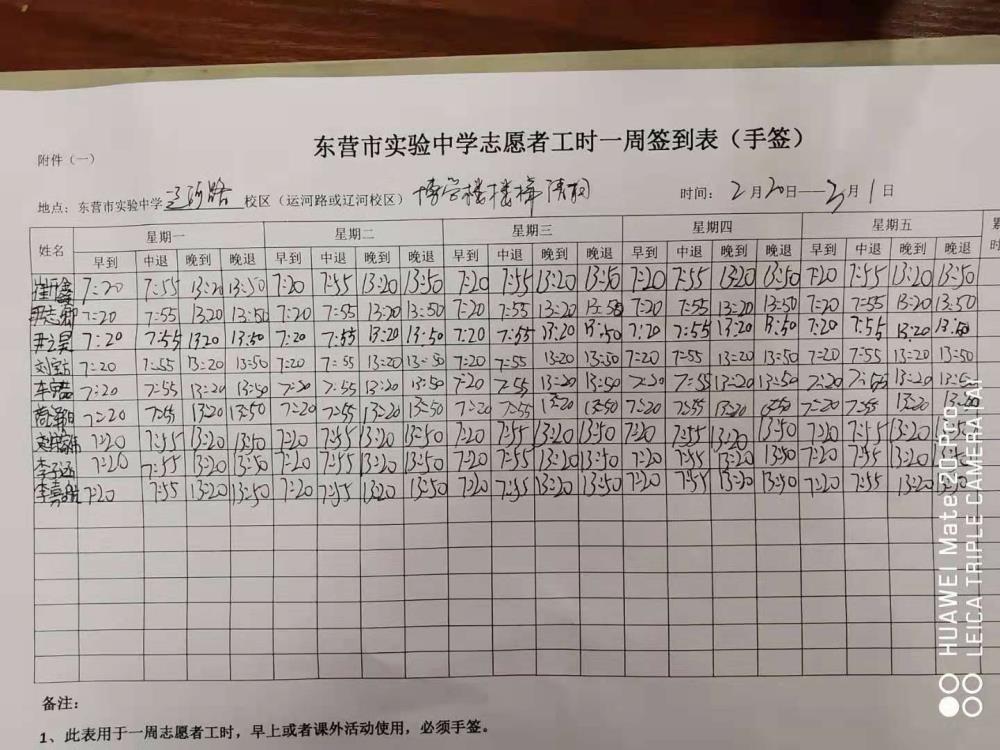 东营市实验中学志愿者工时一周签到表（手签）
附件（一）
地点：东营市实验中学 校区（运河路或辽河校区）博学楼楼梯清扫 时间：2月20日——3月1日
姓名 星期一 星期二 星期三 星期四 星期五
早到 中退 晚到 晚退 早到 中退 晚到 晚退 早到 中退 晚到 晚退 早到 中退 晚到 晚退 早到 中退 晚到 晚退
7:20 7:55 13:20 13:50 7:20 7:55 13:20 13:50 7:20 7:55 13:20 13:50 7:20 7:55 13:20 13:50 7:20 7:55 13:20 13:50
7:20 7:55 13:20 13:50 7:20 7:55 13:20 13:50 7:20 7:55 13:20 13:50 7:20 7:55 13:20 13:50 7:20 7:55 13:20 13:50
7:20 7:55 13:20 13:50 7:20 7:55 13:20 13:50 7:20 7:55 13:20 13:50 7:20 7:55 13:20 13:50 7:20 7:55 13:20 13:50
7:20 7:55 13:20 13:50 7:20 7:55 13:20 13:50 7:20 7:55 13:20 13:50 7:20 7:55 13:20 13:50 7:20 7:55 13:20 13:50
7:20 7:55 13:20 13:50 7:20 7:55 13:20 13:50 7:20 7:55 13:20 13:50 7:20 7:55 13:20 13:50 7:20 7:55 13:20 13:50
7:20 7:55 13:20 13:50 7:20 7:55 13:20 13:50 7:20 7:55 13:20 13:50 7:20 7:55 13:20 13:50 7:20 7:55 13:20 13:20
7:20 7:55 13:20 13:50 7:20 7:55 13:20 13:50 7:20 7:55 13:20 13:50 7:20 7:55 13:20 13:50 7:20 7:55 13:20 13:50
李子涵 7:20 7:55 13:20 13:50 7:20 7:55 13:20 13:50 7:20 7:55 13:20 13:50 7:20 7:55 13:20 13:50 7:20 7:55 13:20 13:50
7:20 7:55 13:20 13:50 7:20 7:55 13:20 13:50 7:20 7:55 13:20 13:50 7:20 7:55 13:20 13:50 7:20 7:55 13:20 13:50
备注：
1、此表用于一周志愿者工时，早上或者课外活动使用，必须手签。
HUAWEI Mate 20 Pro
LEICA TRIPLE CAMERA | AI